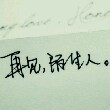 再见，陌生人。